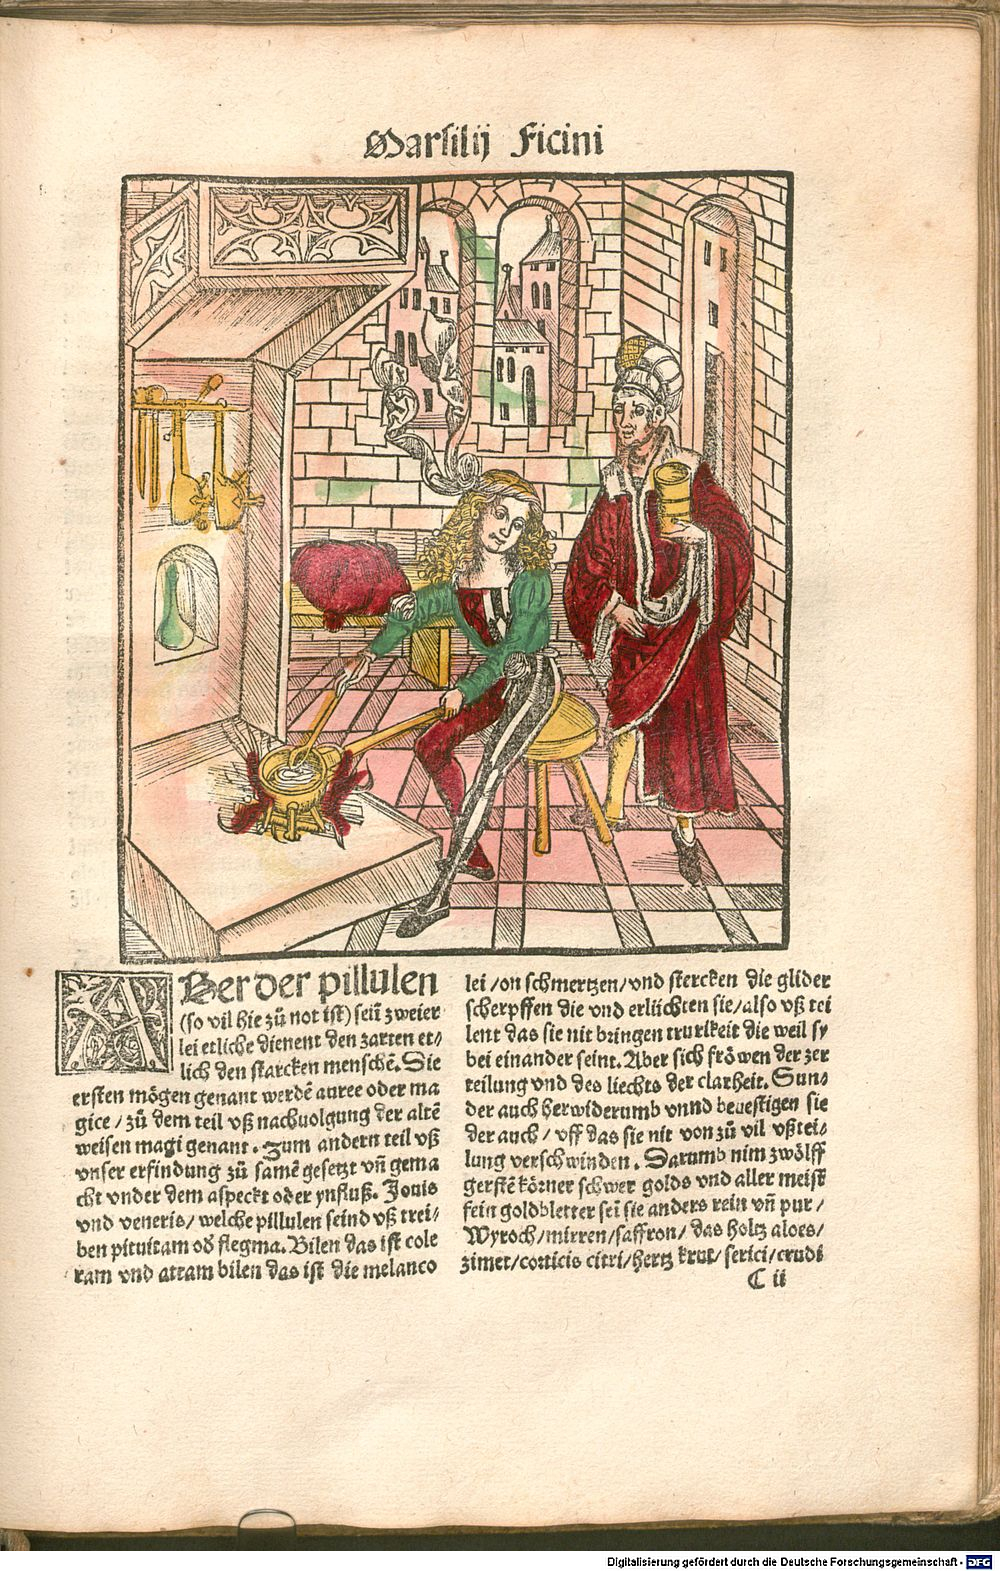 Marsilij Ficini
ABer der pillulen
(so vil hie zů not ist) sein̄ zweier
lei etliche dienent den zarten et⸗
lich den starcken menschē. Sie
ersten mögen genant werdē auree oder ma
gice / zů dem teil vß nachuolgung der altē
weisen magi genant. Zum andern teil vß
vnser erfindung zů samē gesetzt vn̄ gema
cht vnder dem aspeckt oder ynfluß. Jouis
vnd veneris / welche pillulen seind vß trei⸗
ben pituitam od̄ flegma. Bilen das ist cole
ram vnd atram bilen das ist die melanco
lei / on schmertzen / vnd stercken die glider
scherpffen die vnd erlüchten sie / also vß tei
lent das sie nit bringen trurikeit die weil sy
bei einander seint. Aber sich fröwen der zer
teilung vnd des liechts der clarheit. Sun⸗
der auch herwiderumb vnnd beuestigen sie
der auch / vff das sie nit von zů vil vßtei⸗
lung verschwinden. Darumb nim zwölff
gerstē körner schwer golds vnd aller meist
fein goldbletter sei sie anders rein vn̄ pur /
Wyroch / mirren / saffron / das holtz aloes /
zimet / corticis citri / hertz krut / serici / crudi
C ii
Digitalisierung gefördert durch die Deutsche Forschungsgemeinschaft - DFG